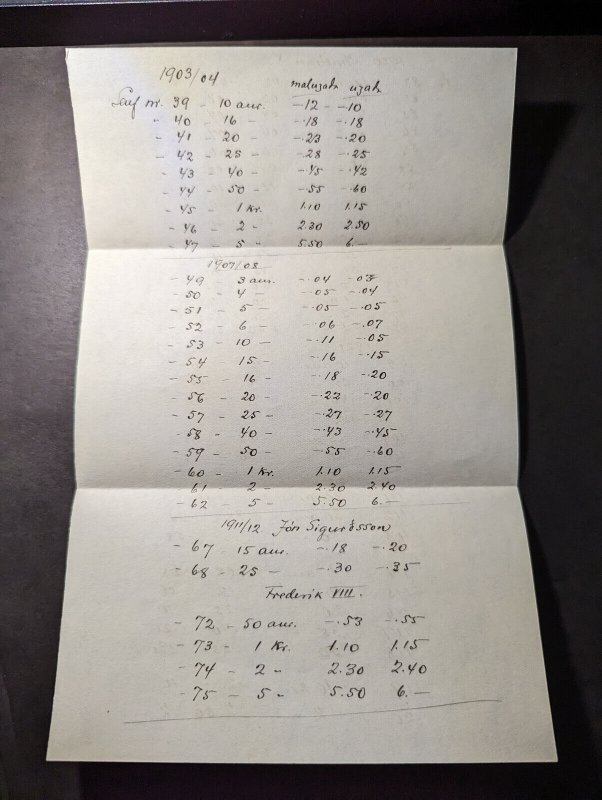 1903/04
maluzah uzah
Senf nr. 39 - 10 aur. -.12 -.10
" 40 - 16 - -.18 -.18
- 41 - 20 - -.23 -.20
- 42 - 25 - -.28 -.25
- 43 - 40 - -.45 -.42
- 44 - 50 - -.55 -.60
- 45 - 1 Kr. 1.10 1.15
- 46 - 2 - 2.30 2.50
- 47 - 5 - 5.50 6.-
1907/08
- 49 - 3 aur. -.04 -.03
- 50 - 4 - -.05 -.04
- 51 - 5 - -.05 -.05
- 52 - 6 - -.06 -.07
- 53 - 10 - -.11 -.05
- 54 - 15 - -.16 -.15
- 55 - 16 - -.18 -.20
- 56 - 20 - -.22 -.20
- 57 - 25 - -.27 -.27
- 58 - 40 - -.43 -.45
- 59 - 50 - -.55 -.60
- 60 - 1 Kr. 1.10 1.15
- 61 - 2 - 2.30 2.40
- 62 - 5 - 5.50 6.-
1911/12 Jón Sigurðsson
- 67 - 15 aur. -.18 -.20
- 68 - 25 - -.30 -.35
Frederik VIII.
- 72 - 50 aur. -.53 -.55
- 73 - 1 Kr. 1.10 1.15
- 74 - 2 - 2.30 2.40
- 75 - 5 - 5.50 6.-